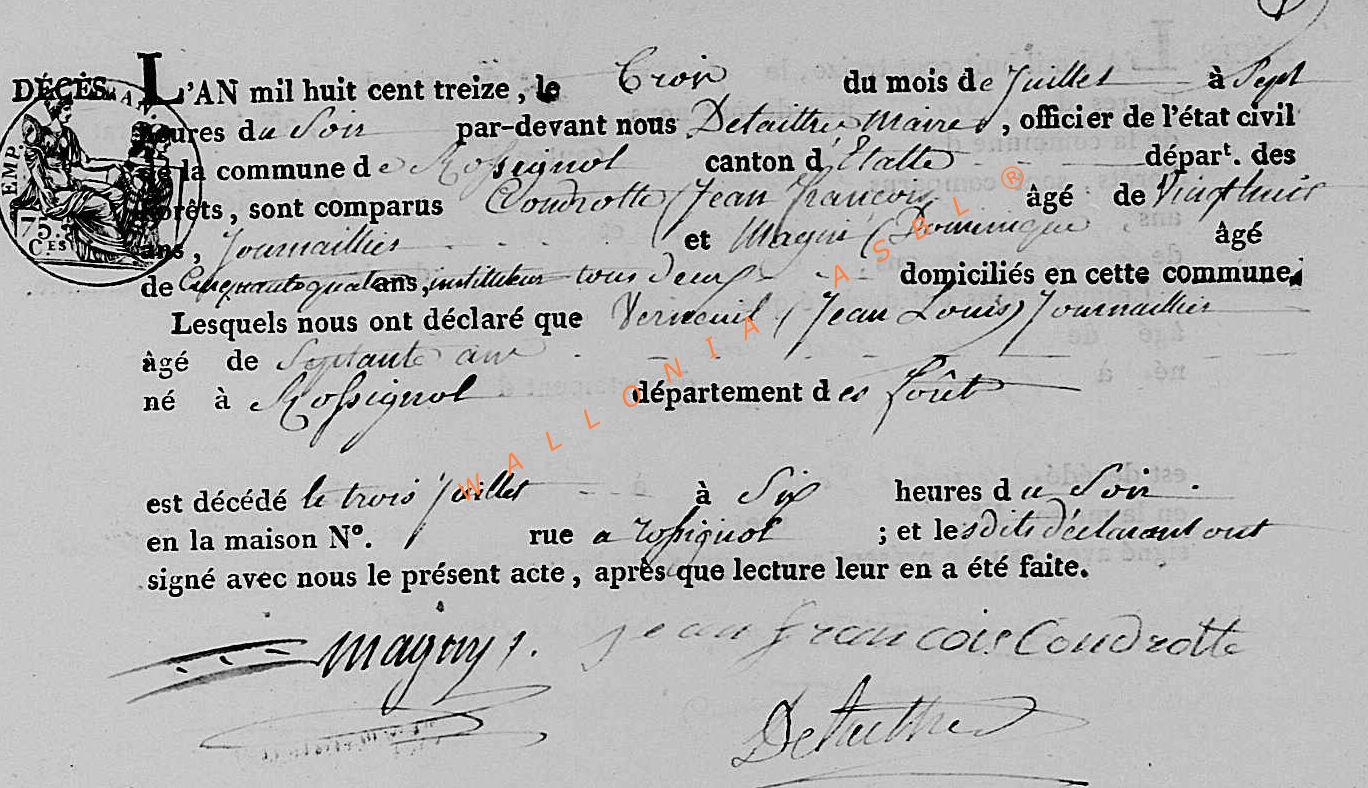 DÉCÈS. L'AN mil huit cent treize, le Trois du mois de Juillet à Sept
heures du Soir par-devant nous Detaille Maire, officier de l'état civil
de la commune de Rossignol canton d'Etalle départ. des
Forêts, sont comparus Coudrotte (Jean François) âgé de Vingt huit
ans, Journaillier et Magni (Dominique) âgé
de Cinquante quatre ans, instituteur tous deux domiciliés en cette commune.
Lesquels nous ont déclaré que Verneuil (Jean Louis) Journaillier
âgé de Septante ans
né à Rossignol département des forêts
est décédé le trois Juillet à Six heures du Soir.
en la maison N°. rue a rossignol ; et lesdits déclarant ont
signé avec nous le présent acte, après que lecture leur en a été faite.
Jean francois Coudrotte
EMP.
75.
C.ES
WALLONIA ASBL ®